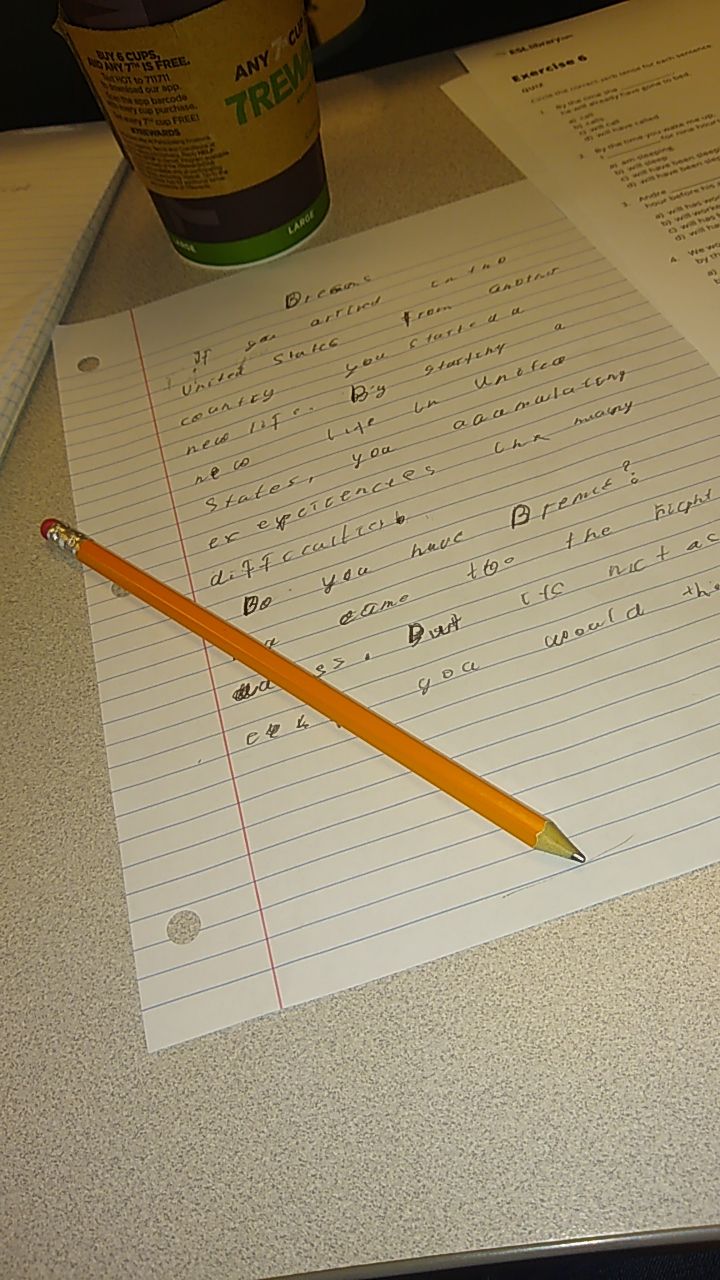 BUY 6 CUPS,
AND ANY 7TH IS FREE.
Text HOT to 711711
to download our app.
Scan the app barcode
with every cup purchase.
Get every 7th cup FREE!
7REWARDS
ANY 7th CUP
7REWA
LARGE
LARGE
ESLlibrary
Exercise 6
QUIZ
Circle the correct verb tense for each sentence.
1. By the time she
he will already have gone to bed.
a) call
b) calls
c) will call
d) will have called
2. By the time you wake me up,
I for nine hours
a) am sleeping
b) will sleep
c) will have been sleep
d) will have been sle
3. Andre
hour before his
a) will has wo
b) will work
c) will has
d) will ha
4. We wo
by th
a)
If you arrived in the
United States from another
country you started a
new life. By starting a
new life in United
States, you aaamulating
ex experiencies like many
Do you have Bremit?
came too the hight
ss. But its nict as
you would thi